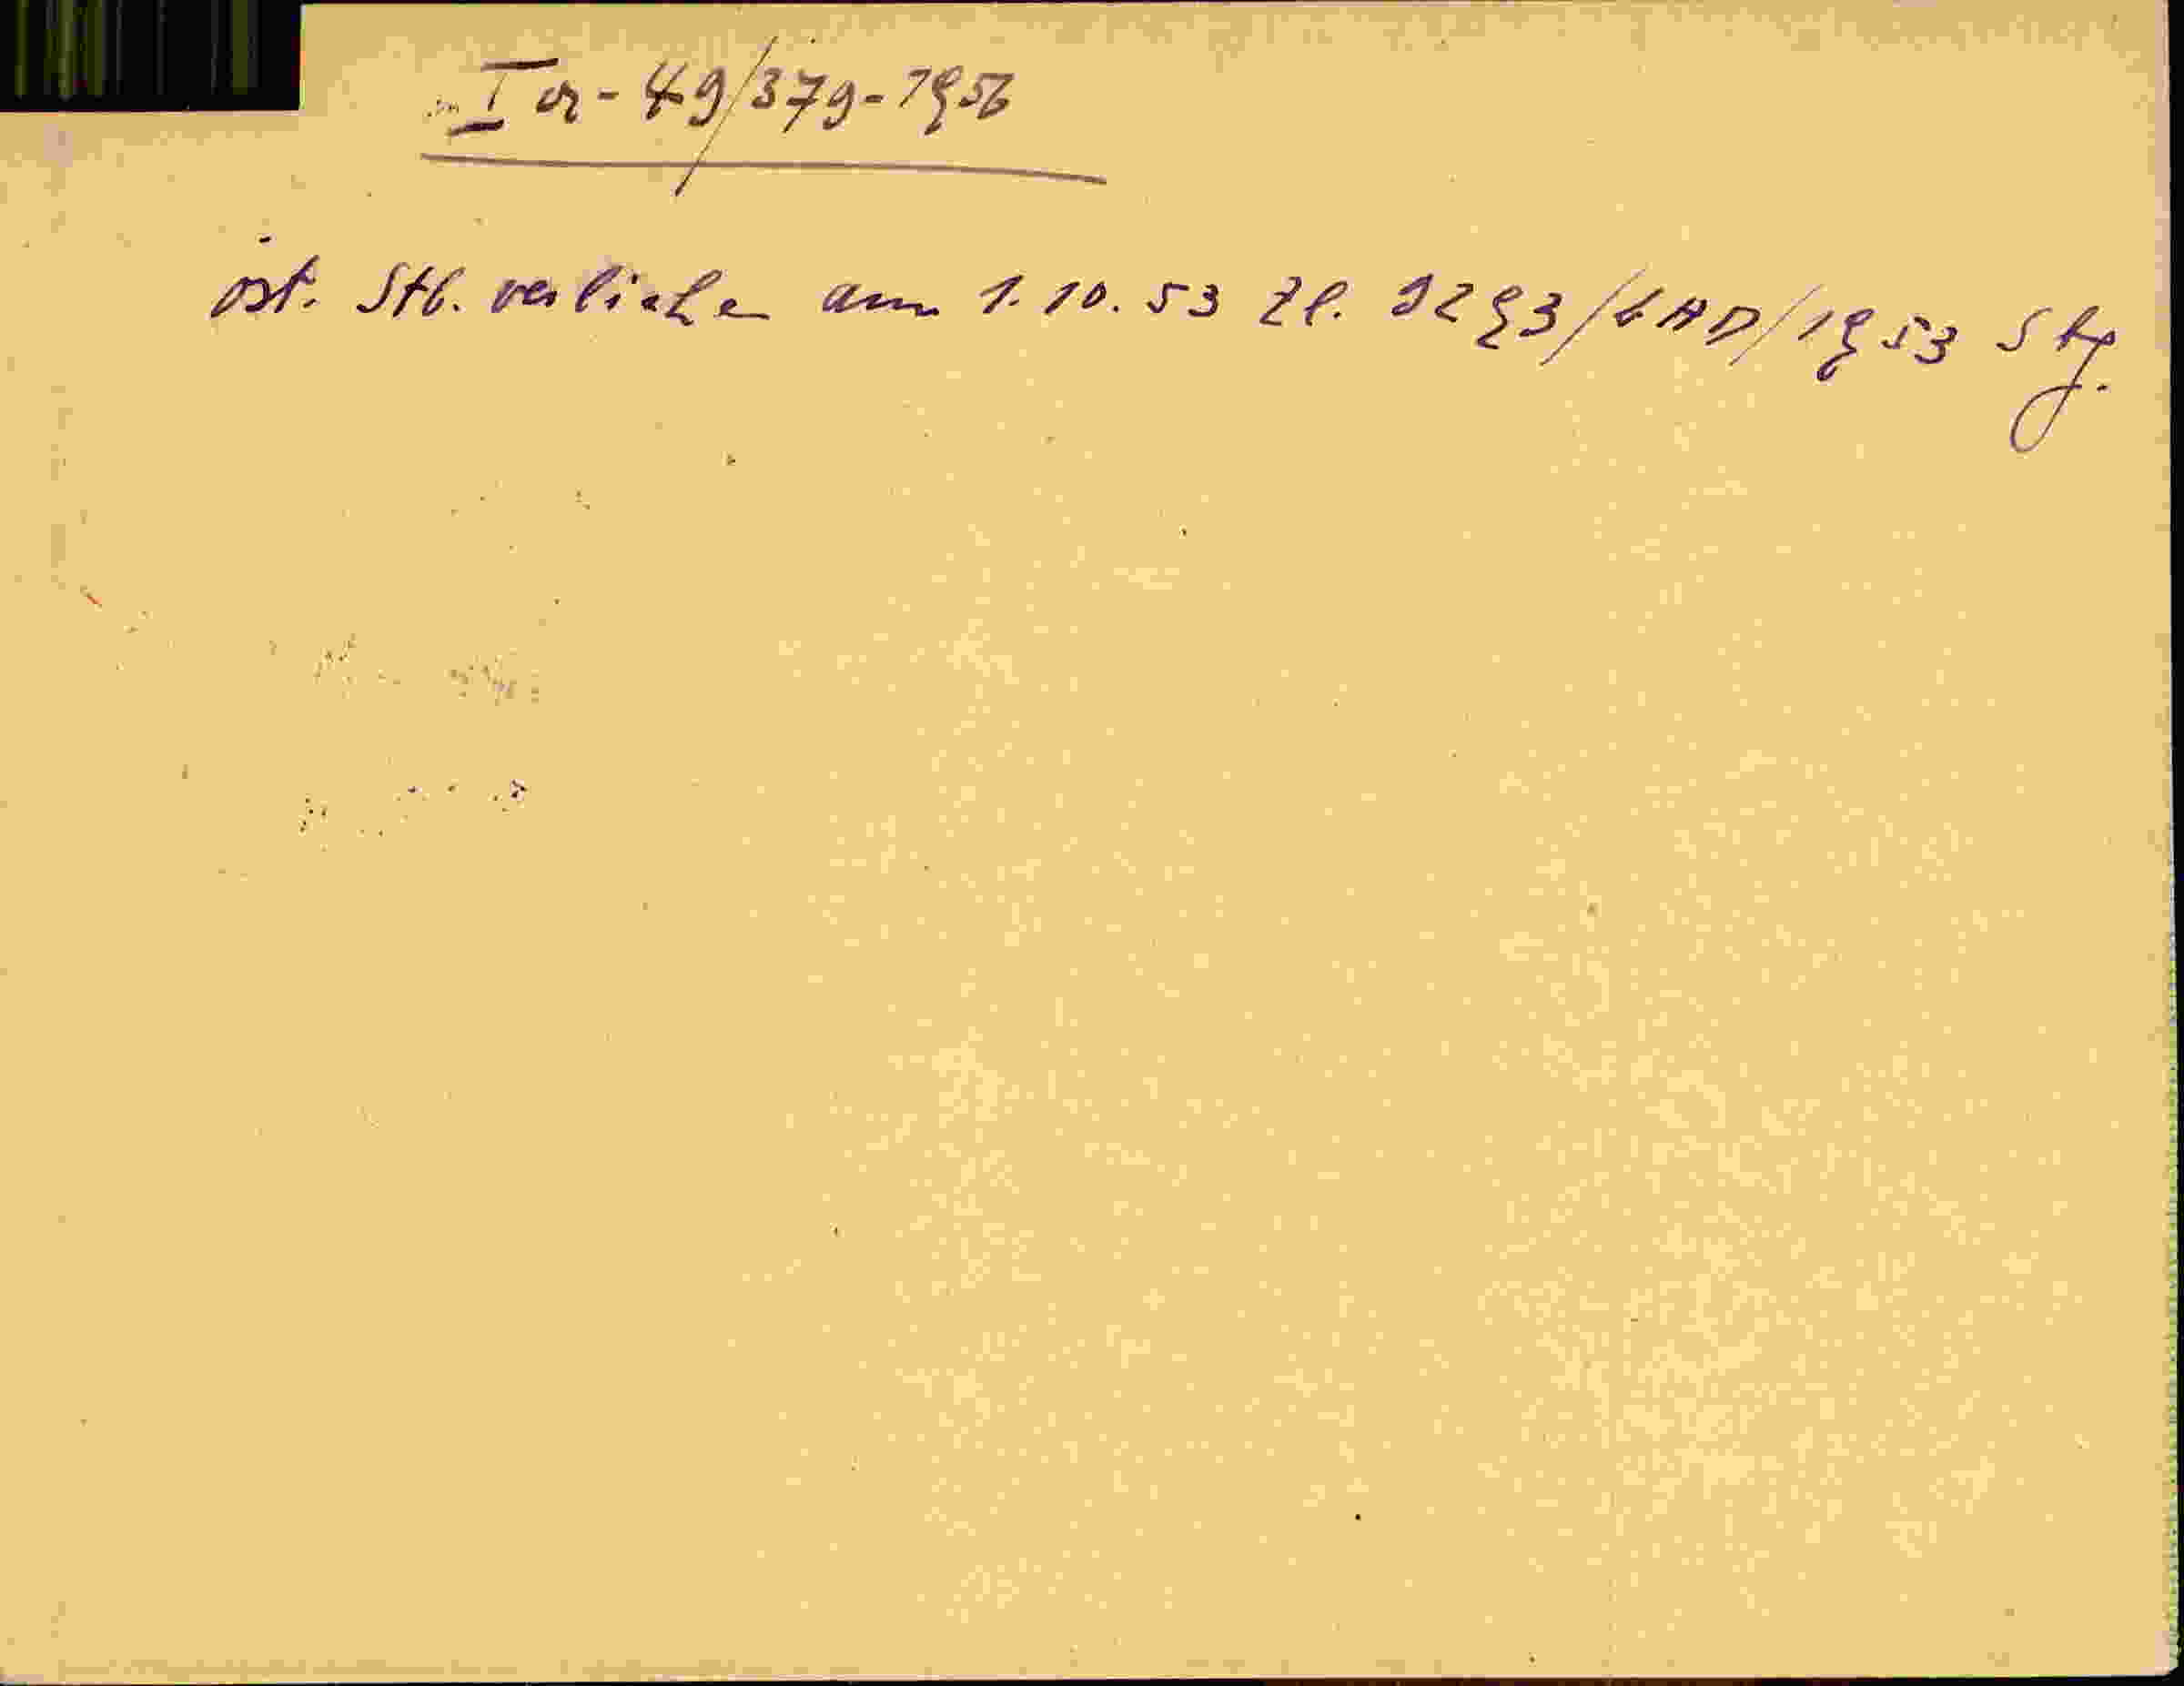 I a - 49/379-1956
öst. Stb. verliehen am 1.10.53 Zl. 9293/LAD/1953 Sbg.